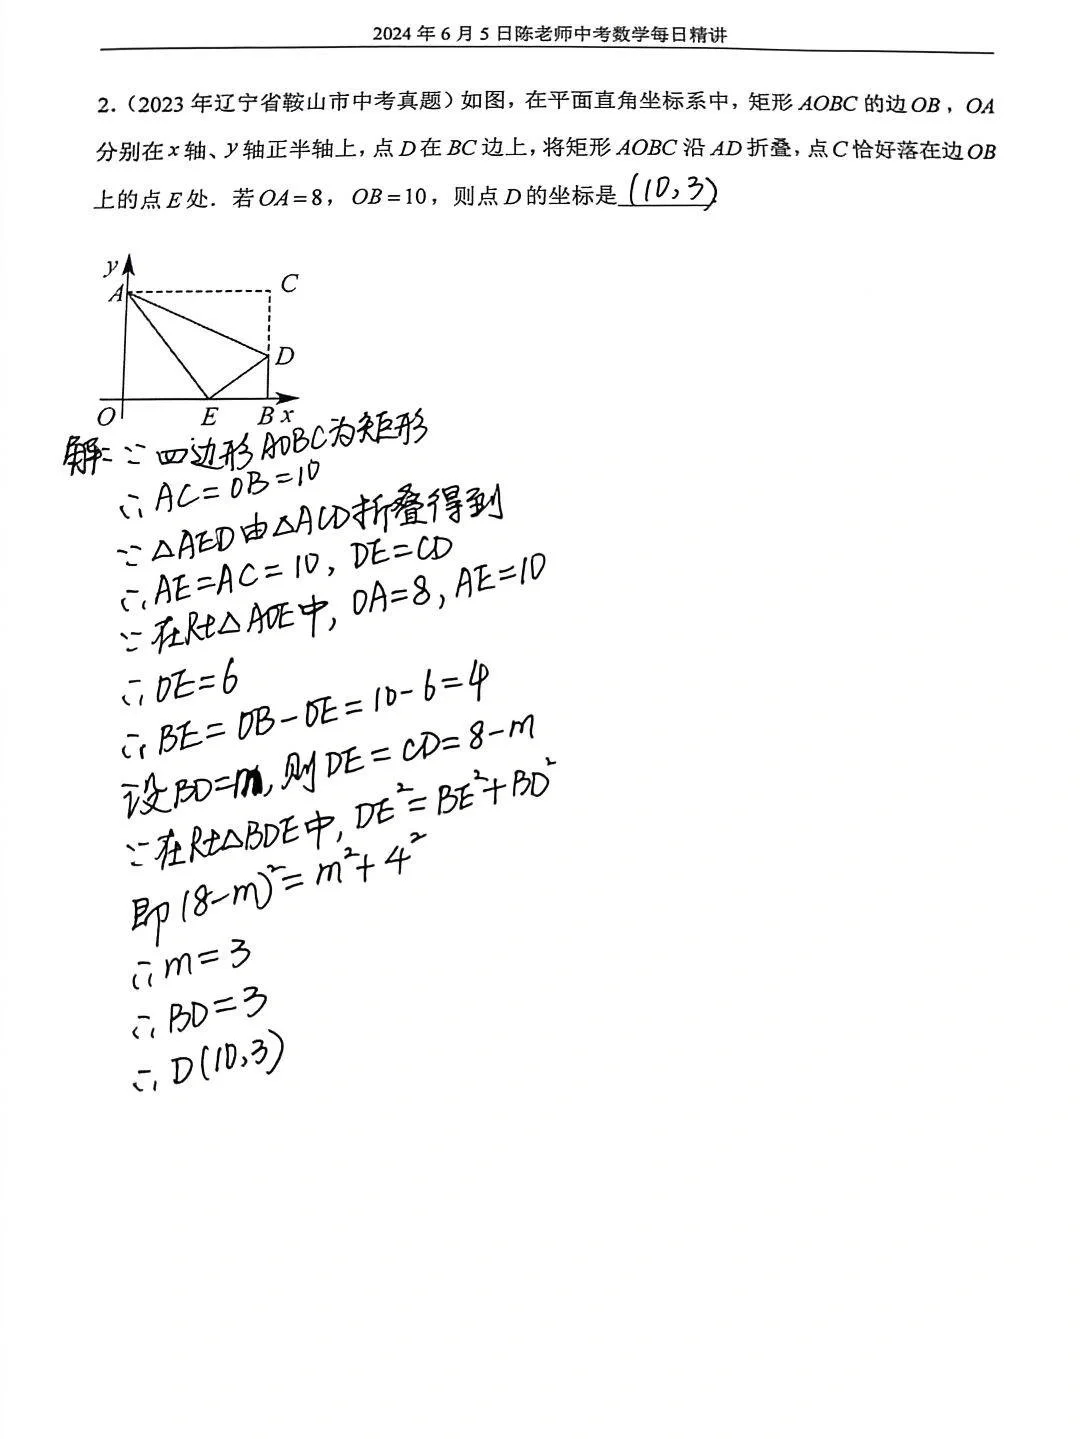 2024 年 6 月 5 日陈老师中考数学每日精讲
2.（2023 年辽宁省鞍山市中考真题）如图，在平面直角坐标系中，矩形 AOBC 的边 OB，OA
分别在 x 轴、y 轴正半轴上，点 D 在 BC 边上，将矩形 AOBC 沿 AD 折叠，点 C 恰好落在边 OB
上的点 E 处．若 OA=8，OB=10，则点 D 的坐标是 (10,3)
y
A
C
D
O
E
B
x
解：∵四边形AOBC为矩形
∴AC=OB=10
∵△AED由△ACD折叠得到
∴AE=AC=10，DE=CD
∵在Rt△AOE中，OA=8，AE=10
∴OE=6
∴BE=OB-OE=10-6=4
设BD=m，则DE=CD=8-m
∵在Rt△BDE中，DE²=BE²+BD²
即(8-m)²=m²+4²
∴m=3
∴BD=3
∴D(10,3)